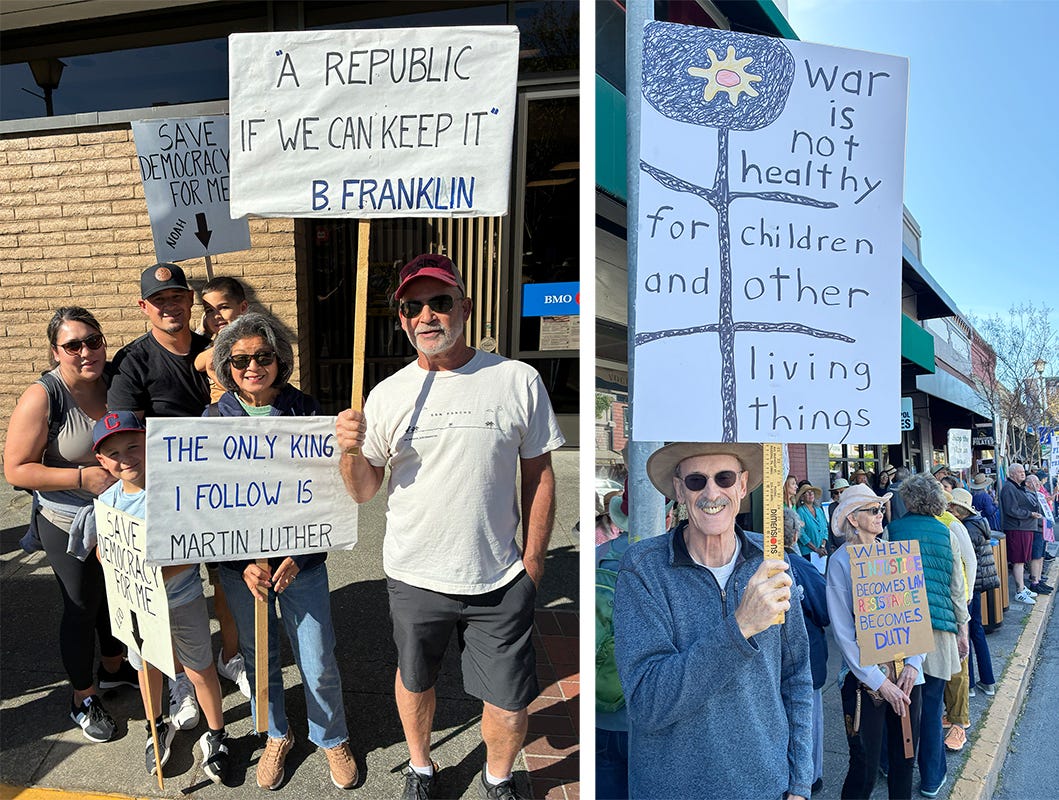 "A REPUBLIC
IF WE CAN KEEP IT"
B. FRANKLIN
SAVE
DEMOCRACY
FOR ME
NOAH
BMO
C
THE ONLY KING
I FOLLOW IS
MARTIN LUTHER
SAVE
DEMOCRACY
FOR ME
LEO
war
is
not
healthy
for children
and other
living
things
DIMENSIONS
WHEN
INJUSTICE
BECOMES LAW
RESISTANCE
BECOMES
DUTY